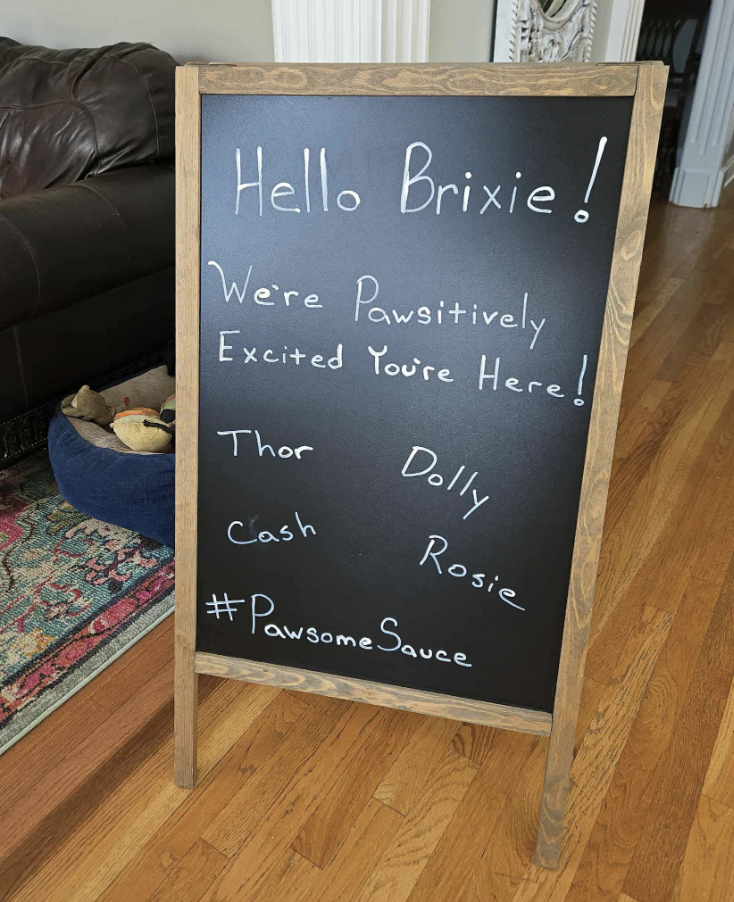 Hello Brixie!
We're Pawsitively
Excited You're Here!
Thor Dolly
Cash Rosie
#PawsomeSauce